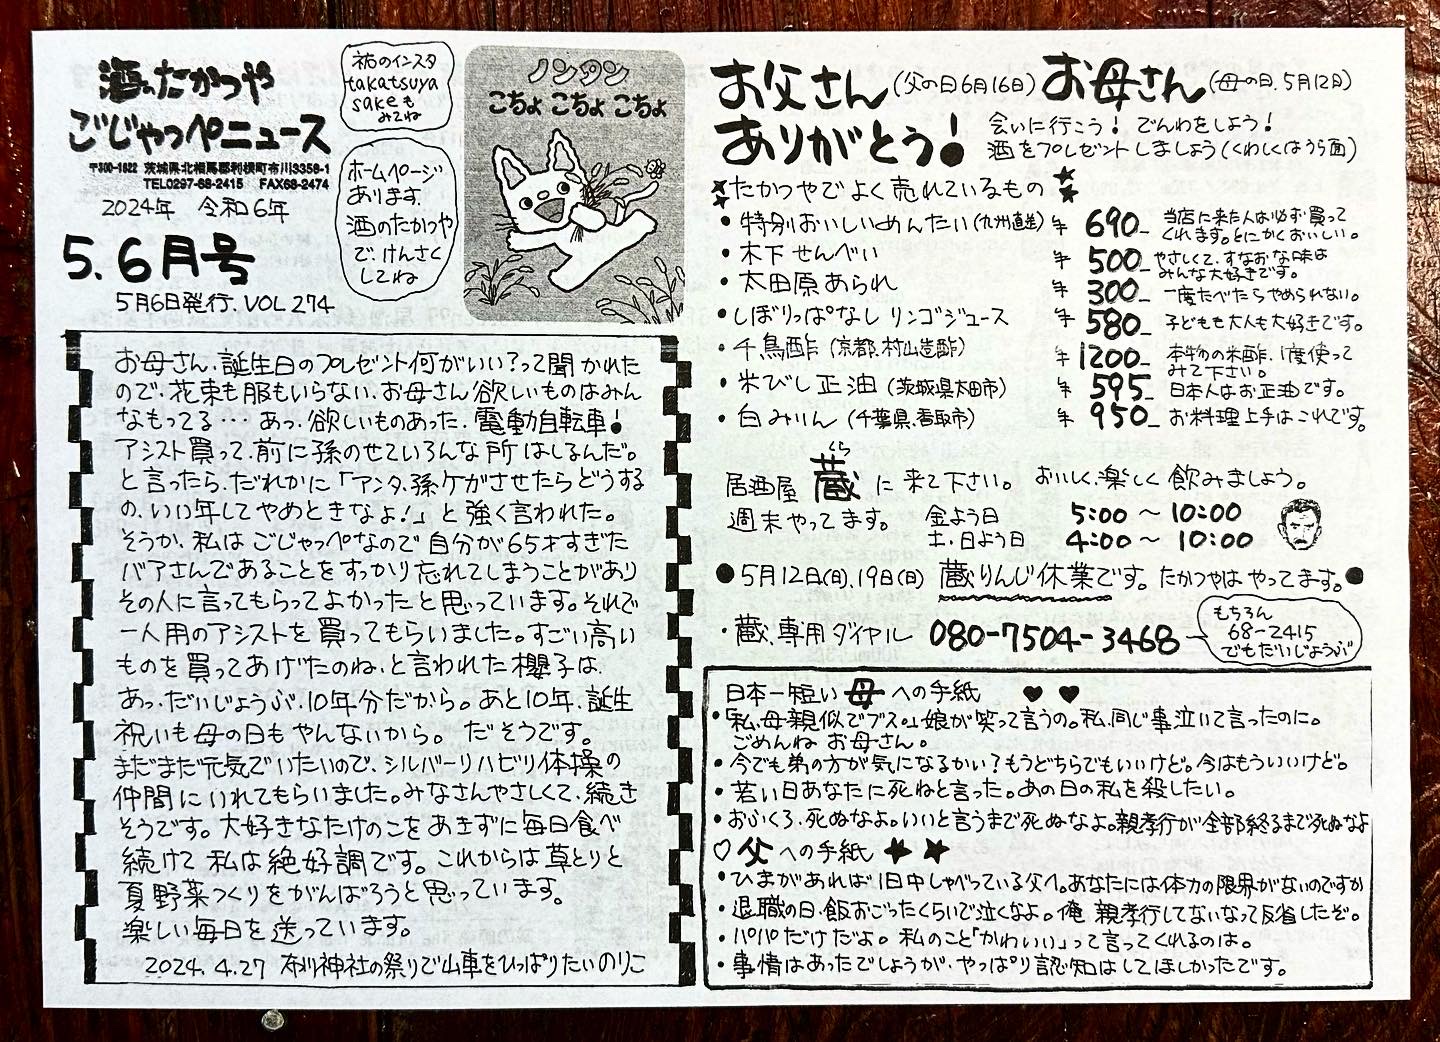 酒のたかつや
ごじゃっぺニュース
〒300-1622 茨城県北相馬郡利根町布川3358-1
TEL0297-68-2415 FAX68-2474
2024年 令和6年
5.6月号
5月6日発行.VOL274
祐のインスタ
takatsuya
sakeも
みてね
ホームページ
あります.
酒のたかつや
で、けんさく
してね
ノンタン
こちょ こちょ こちょ
お母さん、誕生日のプレゼント何がいい?って聞かれた
ので、花束も服もいらない、お母さん欲しいものはみん
なもってる…あっ、欲しいものあった、電動自転車!
アシスト買って、前に孫のせていろんな所はしるんだ。
と言ったら、だれかに「アンタ、孫、ケガさせたらどうする
の、いい年してやめときなよ!」と強く言われた。
そうか、私はごじゃっぺなので自分が65才すぎた
バアさんであることをすっかり忘れてしまうことがあり
その人に言ってもらってよかったと思っています。それで
一人用のアシストを買ってもらいました。すごい高い
ものを買ってあげたのね、と言われた櫻子は、
あっ、だいじょうぶ、10年分だから。あと10年、誕生
祝いも母の日もやんないから。だそうです。
まだまだ元気でいたいので、シルバーリハビリ体操の
仲間にいれてもらいました。みなさんやさしくて、続き
そうです。大好きなたけのこをあきずに毎日食べ
続けて私は絶好調です。これからは草とりと
夏野菜つくりをがんばろうと思っています。
楽しい毎日を送っています。
2024.4.27 布川神社の祭りで山車をひっぱりたいのりこ
お父さん(父の日6月16日)お母さん(母の日.5月12日)
ありがとう!
会いに行こう! でんわをしよう!
酒をプレゼントしましょう(くわしくはうら面)
たかつやでよく売れているもの
・特別おいしいめんたい(九州直送) ¥690- 当店に来た人は必ず買って
くれます。とにかくおいしい。
・木下せんべい ¥500- やさしくて、すなおな味は
みんな大好きです。
・太田原あられ ¥300- 一度たべたらやめられない。
・しぼりっぱなしリンゴジュース ¥580- 子どもも大人も大好きです。
・千鳥酢(京都.村山造酢) ¥1200- 本物の米酢.1度使って
みて下さい。
・米びし正油(茨城県太田市) ¥595- 日本人はお正油です。
・白みりん(千葉県.香取市) ¥950- お料理上手はこれです。
くら
居酒屋 蔵に来て下さい。 おいしく、楽しく飲みましょう。
週末やってます。 金よう日 5:00〜10:00
土・日よう日 4:00〜10:00
●5月12日(日)、19日(日) 蔵りんじ休業です。たかつやはやってます。●
・蔵、専用ダイヤル 080-7504-3468
もちろん
68-2415
でもだいじょうぶ
日本一短い母への手紙 ♥ ♥
・「私、母親似でブス。」娘が笑って言うの。私、同じ事泣いて言ったのに。
ごめんねお母さん。
・今でも弟の方が気になるかい?もうどちらでもいいけど。今はもういいけど。
・若い日あなたに死ねと言った。あの日の私を殺したい。
・おふくろ、死ぬなよ。いいと言うまで死ぬなよ。親孝行が全部終るまで死ぬなよ
♡父への手紙 ★ ★
・ひまがあれば1日中しゃべっている父へ。あなたには体力の限界がないのですか
・退職の日、飯おごったくらいで泣くなよ。俺 親孝行してないなって反省したぞ。
・パパだけだよ。私のこと「かわいい」って言ってくれるのは。
・事情はあったでしょうが、やっぱり認知はしてほしかったです。